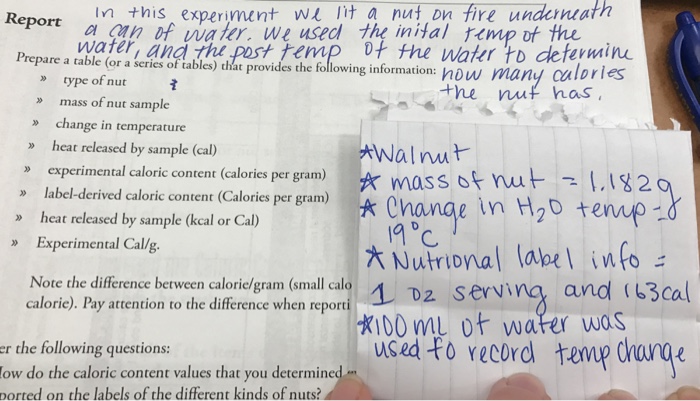 Report
In this experiment we lit a nut on fire underneath
a can of water. We used the inital temp of the
water, and the post temp of the water to determine
how many calories
the nut has.
Prepare a table (or a series of tables) that provides the following information:
» type of nut
» mass of nut sample
» change in temperature
» heat released by sample (cal)
» experimental caloric content (calories per gram)
» label-derived caloric content (Calories per gram)
» heat released by sample (kcal or Cal)
» Experimental Cal/g.
Note the difference between calorie/gram (small calo
calorie). Pay attention to the difference when reporti
er the following questions:
ow do the caloric content values that you determined
ported on the labels of the different kinds of nuts?
★Walnut
★ mass of nut = 1.182g
★ Change in H₂O temp =
19°C
★ Nutrional label info =
1 oz serving and 163cal
★100 mL of water was
used to record temp change